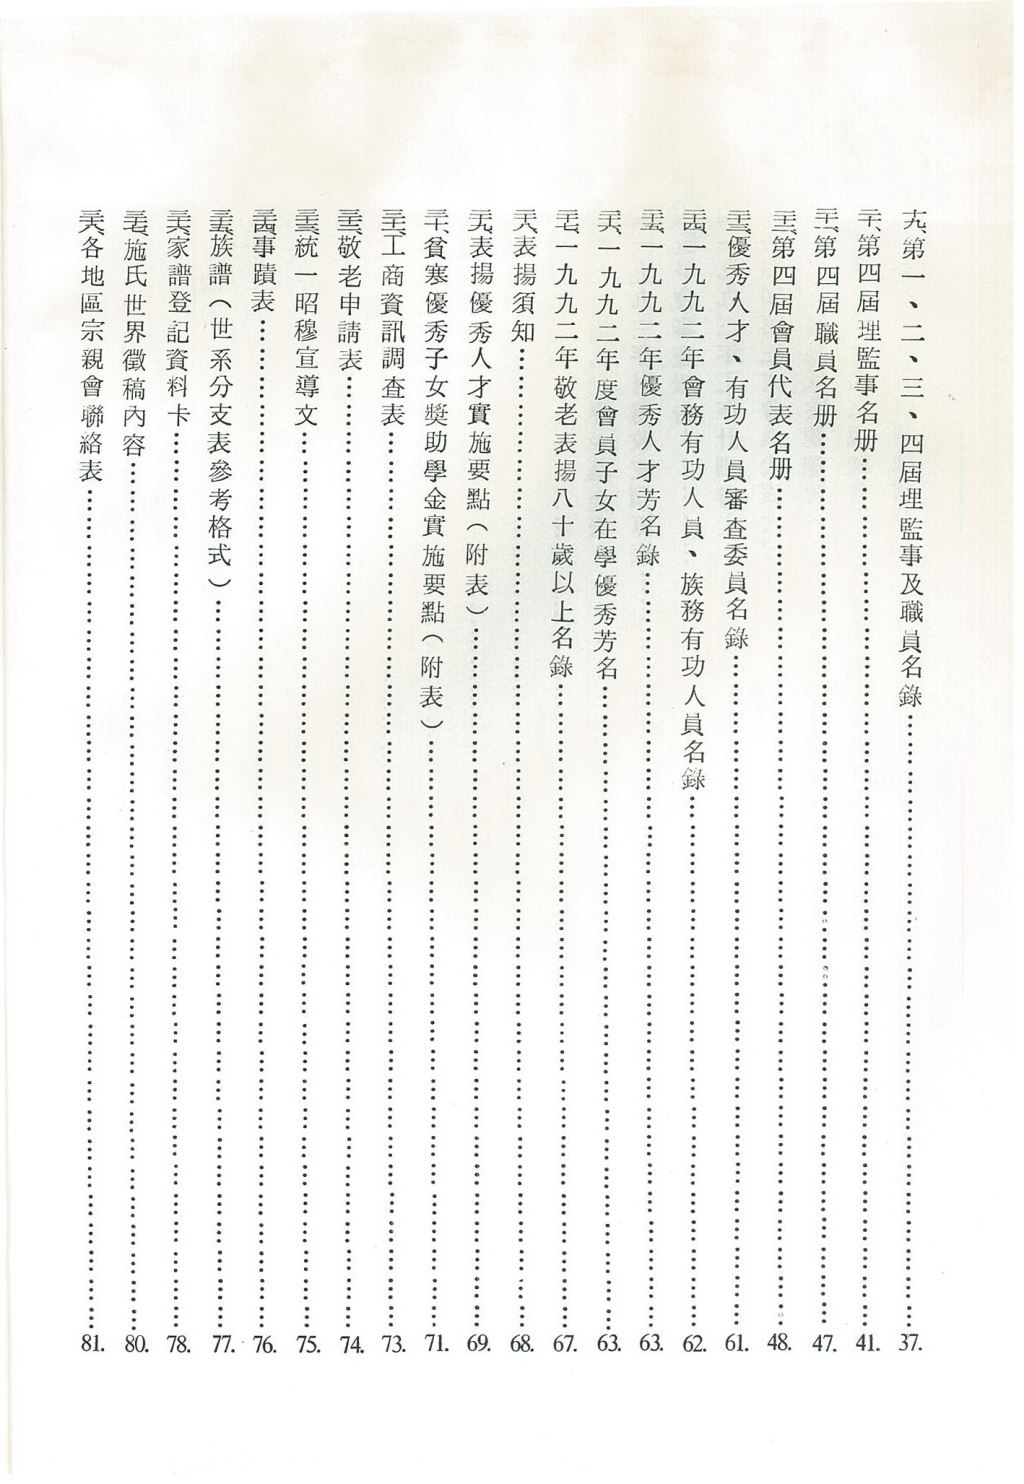 十九、第一、二、三、四屆理監事及職員名錄……37.
二十、第四屆理監事名册……41.
二十一、第四屆職員名册……47.
二十二、第四屆會員代表名册……48.
二十三、優秀人才、有功人員審查委員名錄……61.
二十四、一九九二年會務有功人員、族務有功人員名錄……62.
二十五、一九九二年優秀人才芳名錄……63.
二十六、一九九二年度會員子女在學優秀芳名……63.
二十七、一九九二年敬老表揚八十歲以上名錄……67.
二十八、表揚須知……68.
二十九、表揚優秀人才實施要點(附表)……69.
三十、貧寒優秀子女獎助學金實施要點(附表)……71.
三十一、工商資訊調查表……73.
三十二、敬老申請表……74.
三十三、統一昭穆宣導文……75.
三十四、事蹟表……76.
三十五、族譜(世系分支表參考格式)……77.
三十六、家譜登記資料卡……78.
三十七、施氏世界徵稿內容……80.
三十八、各地區宗親會聯絡表……81.